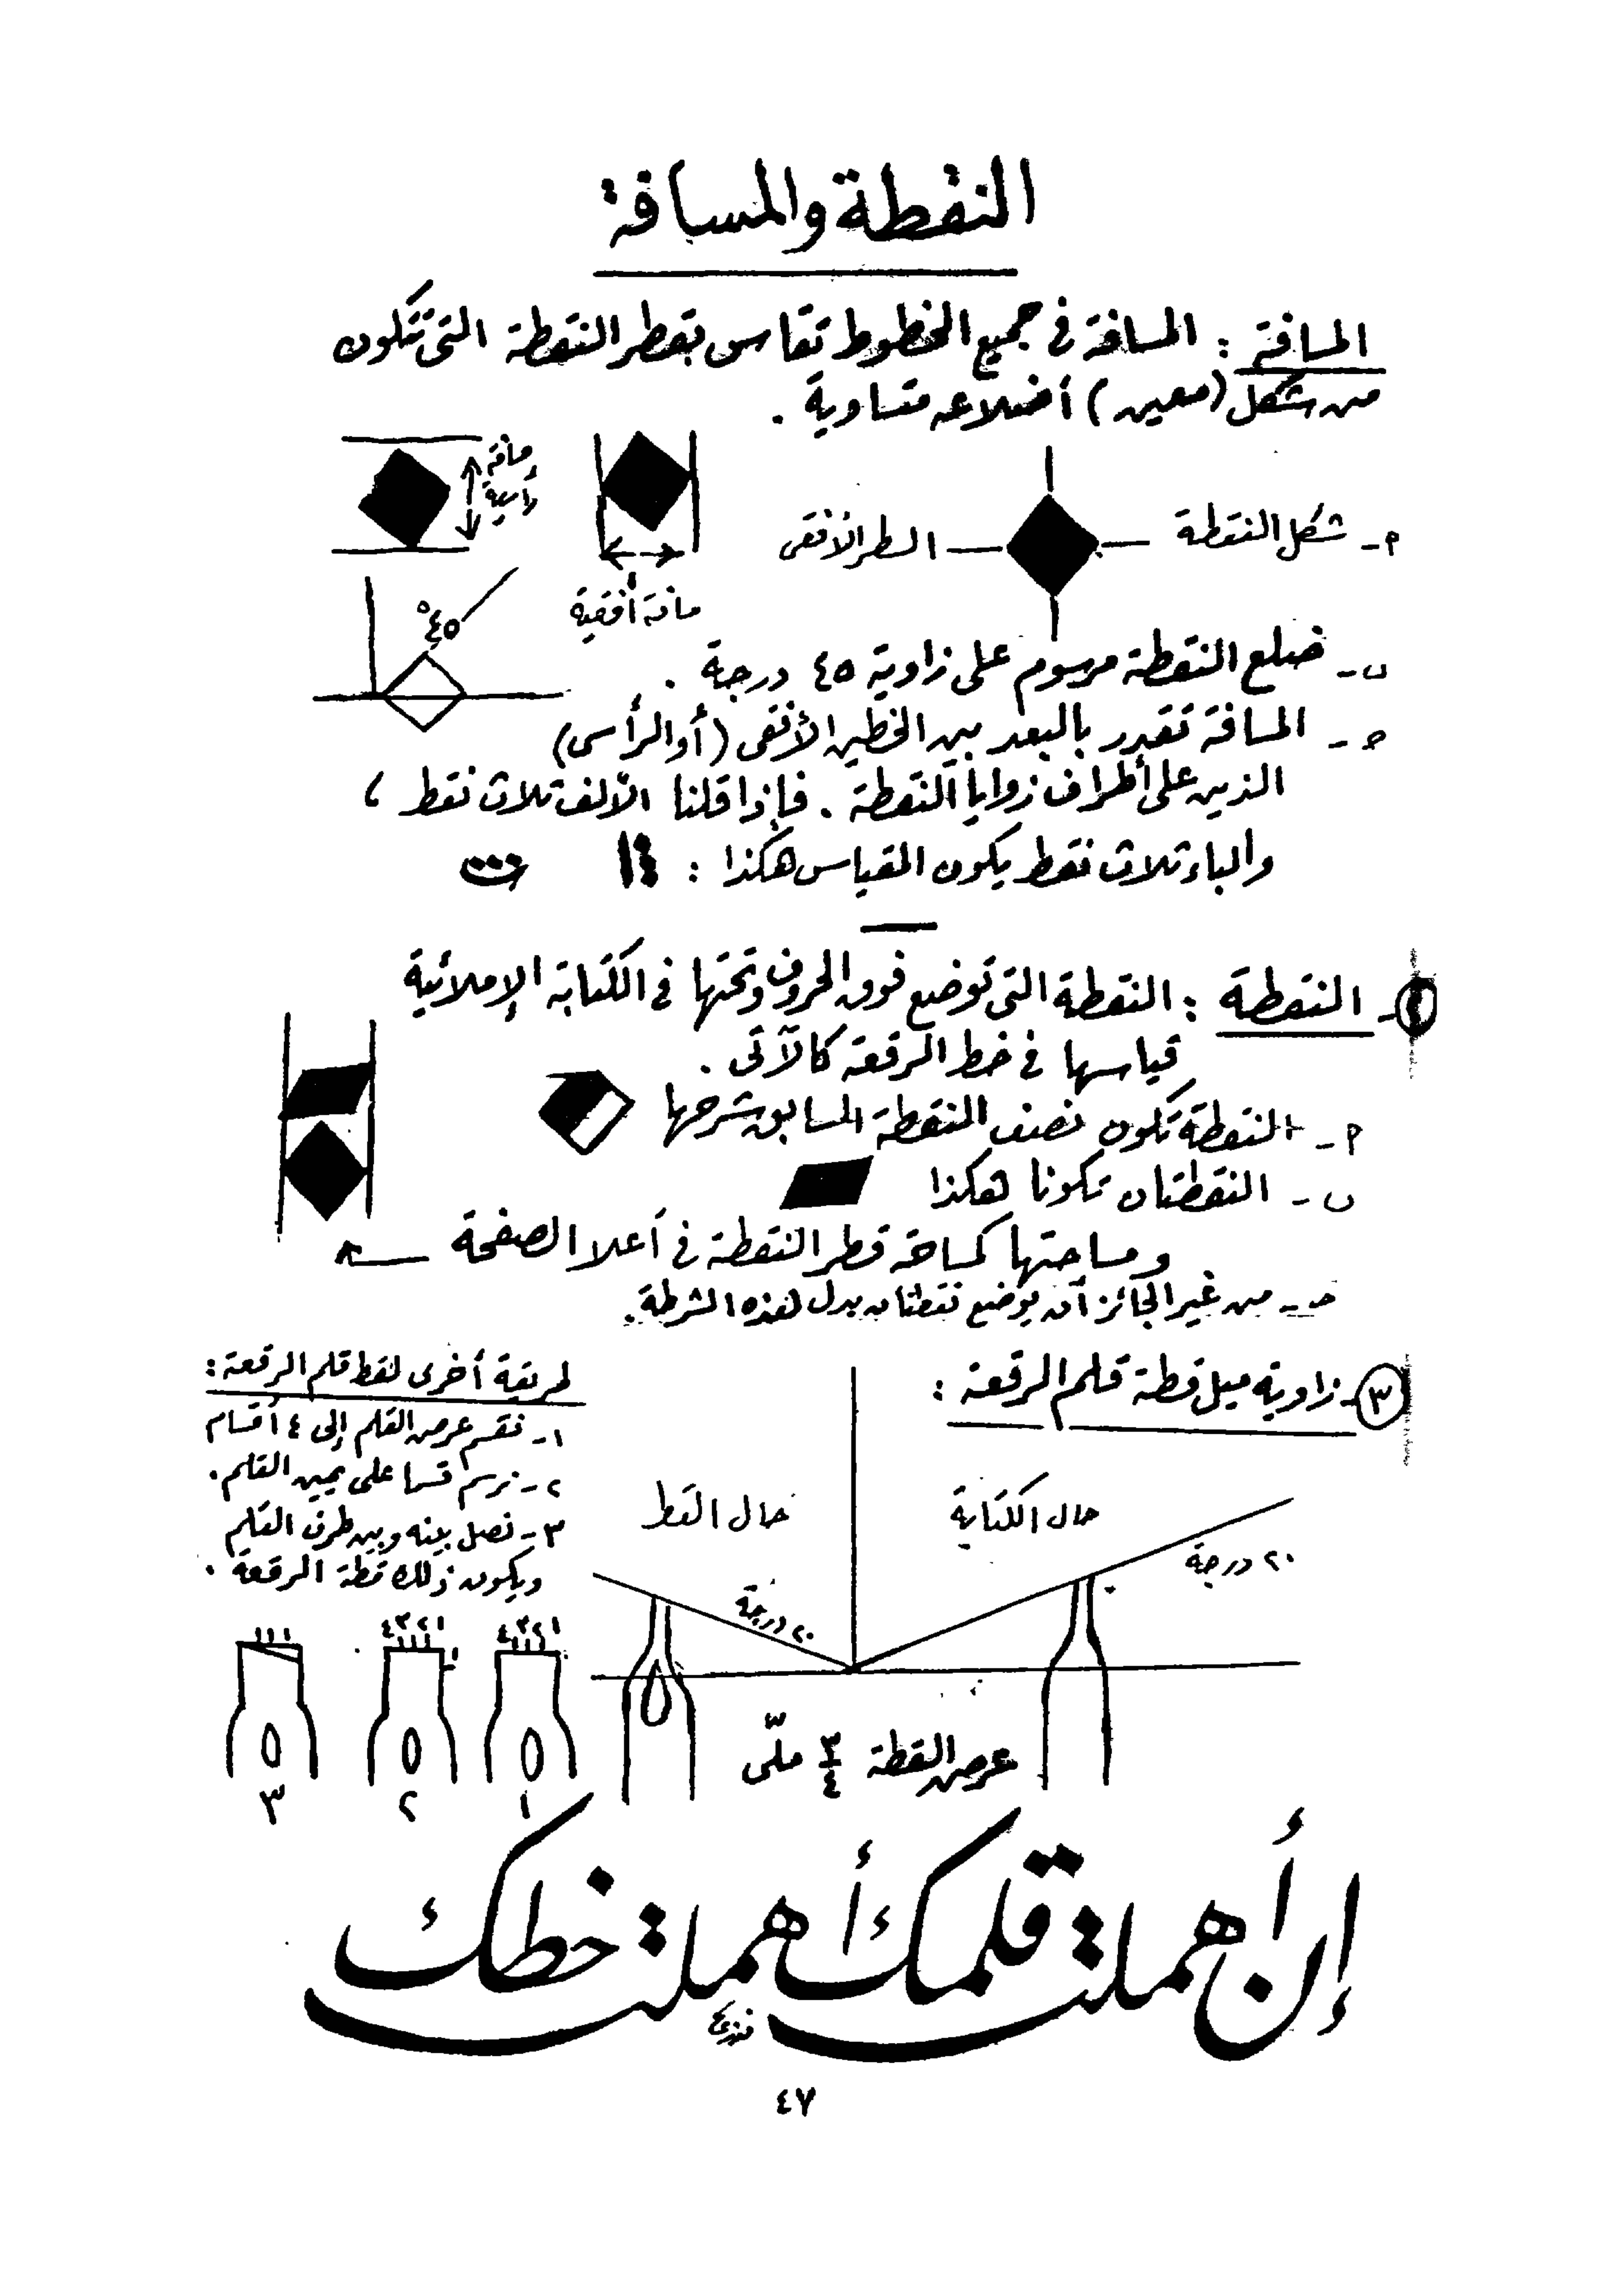 النقطة والمسافة
المسافة : المسافة في جميع الخطوط تقاس بقطر النقطة التي تتكون
من شكل (معين) أضلاعه متساوية .
م- شكل النقطة
السطر الأفقي
مسافة أفقية
مسافة رأسية
٤٥°
ب- ضلع النقطة مرسوم على زاوية ٤٥ درجة .
ح- المسافة تقدر بالبعد بين الخطين الأفقي (أو الرأسي)
الذين على أطراف زوايا النقطة . فإذا قلنا الألف ثلاث نقط ،
والباء ثلاث نقط يكون المقياس هكذا :
النقطة : النقطة التي توضع فوق الحروف وتحتها في الكتابة الإملائية
قياسها في خط الرقعة كالآتي .
م- النقطة تكون نصف النقطة السابق شرحها
ب- النقطتان تكونا هكذا
ومساحتها كمساحة قطر النقطة في أعلا الصفحة
ح- من غير الجائز أن يوضع نقطتان بدل هذه الشرطة .
٣- زاوية ميل قطة قلم الرقعة :
حال الكتابة
٢٠ درجة
حال القط
٢٠ درجة
عرض القطة ٣/٤ ملّي
طريقة أخرى لقط قلم الرقعة :
١- نقسم عرض القلم إلى ٤ أقسام
٢- نرسم قسما على يمين القلم .
٣- نصل بينه وبين طرف القلم
ويكون ذلك قطة الرقعة .
١ ٢ ٣ ٤
١ ٢ ٣ ٤
١
٢
٣
إن أهملت قلمك أهملت خطك
٤٧